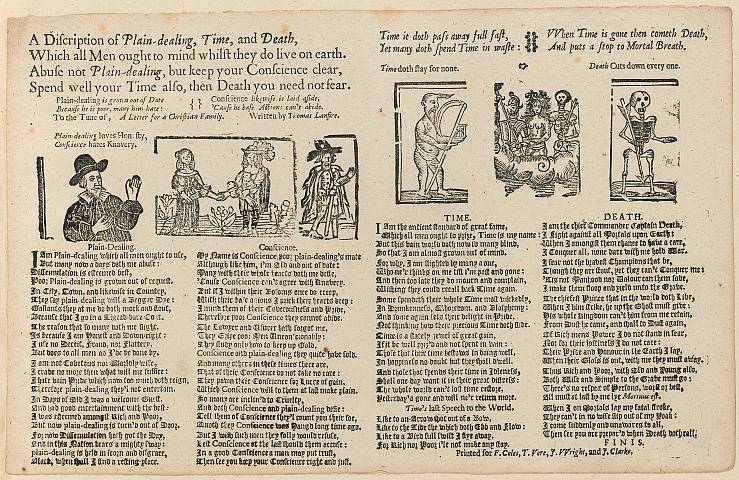 A Discription of Plain-dealing, Time, and Death,
Which all Men ought to mind whilst they do live on earth.
Abuse not Plain-dealing, but keep your Conscience clear,
Spend well your Time also, then Death you need not fear.
Plain-dealing is grown out of Date
Because he is poor, many him hate:
Conscience likewise is laid aside,
'Cause he base Actions can't abide.
To the Tune of, A Letter for a Christian Family. Written by Thomas Lanfire.
Plain-dealing loves Honesty,
Conscience hates Knavery.
Plain-Dealing.
I Am Plain-dealing which all men ought to use,
But many now a days doth me abuse:
Dissimulation is esteemed best,
Poor Plain-dealing is grown out of request.
In City, Town, and likewise in Country,
They say plain-dealing will a Beggar Dye:
Gallants they at me do both mock and flout,
Because that I go in a thread-bare Coat.
The reason that so many doth me slight,
Is because I am honest and Down-right:
I use no Deceit, Fraud, nor Flattery,
But does to all men as I'de be done by.
I am not Covetous nor Worldly wise,
I crave no more then what will me suffice:
I hate vain Pride which now too much doth reign,
Therefore plain-Dealing they'l not entertain.
In Days of Old I was a welcome Guest,
And had good entertainment with the best:
I was esteemed amongst Rich and Poor,
But now plain-dealing is turn'd out of Door.
For now Dissimulation he's got the Day,
And in this Nation bears a mighty sway:
plain-dealing is held in scorn and disgrace,
Alack, when shall I find a resting-place.
Conscience.
My Name is Conscience, poor plain-dealing's mate
Although like him, I'm Old and out of date:
Many with their whole hearts doth me detest,
'Cause Conscience can't agree with Knavery.
But if I within their Bosoms once do creep,
With their base actions I prick their hearts deep:
I mind them of their Covetousness and Pride,
Therefore poor Conscience they cannot abide.
The Lawyer and Usurer hath forgot me,
They Gripe poor Men Unconscionably:
They study only how to heap up Gold,
Conscience and plain-dealing they quite have sold.
And many others in these times there are,
That of their Conscience do not take no care:
They pawn their Conscience for Lucre of gain,
Which Conscience will to them at last make plain.
So many are inclin'd to Cruelty,
And doth Conscience and plain-dealing defie:
Tell them of Conscience they'l count you their foe,
Quoth they Conscience was Hang'd long time ago.
But I wish such men they folly would refuse,
Lest Conscience at the last should them accuse:
In a good Conscience a man may put trust,
Then see you keep your Conscience right and just.
Time it doth pass away full fast,
Yet many doth spend Time in waste:
When Time is gone then cometh Death,
And puts a stop to Mortal Breath.
Time doth stay for none.
Death Cuts down every one.
TIME.
I am the antient standard of great fame,
Which all men ought to prize, Time is my name:
But this vain world doth now so many blind,
So that I am almost grown out of mind.
For why, I am slighted by many a one,
Who ne'r thinks on me till i'm past and gone:
And then too late they do mourn and complain,
Wishing they could recall back Time again.
Some spendeth their whole Time most wickedly,
In Drunkenness, Whoredom, and Blasphemy:
And some again sets their delight in Pride,
Not thinking how their precious Time doth slide.
Time is a stately jewel of great gain,
If it be well priz'd and not spent in vain:
Those that their time bestows in doing well,
In happiness no doubt but they shall dwell.
And those that spends their time in Idleness,
Shall one day want it in their great distress:
The whole world can't lost time restore,
Yesterday's gone and will ne'r return more.
Time's last Speech to the World.
Like to an Arrow shot out of a Bow,
Like to the Tide the which doth Ebb and flow:
Like to a Bird full swift I flye away,
For Rich nor Poor, i'le not make any stay.
DEATH.
I am the chief Commander Captain Death,
I Fight against all Mortals upon Earth:
When I amongst them chance to have a care,
I Conquer all, none dare with me hold War.
I fear not the stoutest Champions that be,
Though they are stout, yet they can't Conquer me:
'Tis not Manhood nor Valour can them save,
I make them stoop and yield unto the Grave.
The chiefest Prince that in the world doth live,
When I him strike, he up the Ghost must give:
His whole kingdom can't him from me retain,
From Dust he came, and shall to Dust again.
Of Rich mens Power I do not stand in fear,
Nor for their loftiness I do not care:
Their Pride and Honour in the Earth I lay,
When their Glass is out, with me they must away.
Thus Rich and Poor, with Old and Young also,
Both Wise and Simple to the Grave must go:
There's no respect of Persons, worst or best,
All must at last by me lye Mortuus est.
When I on Mortals lay my fatal stroke,
They can't in no wise slip out of my Yoak:
I come suddenly and unawares to all,
Then see you are prepar'd when Death doth call,
FINIS.
Printed for F. Coles, T. Vere, J. Wright, and J. Clarke.